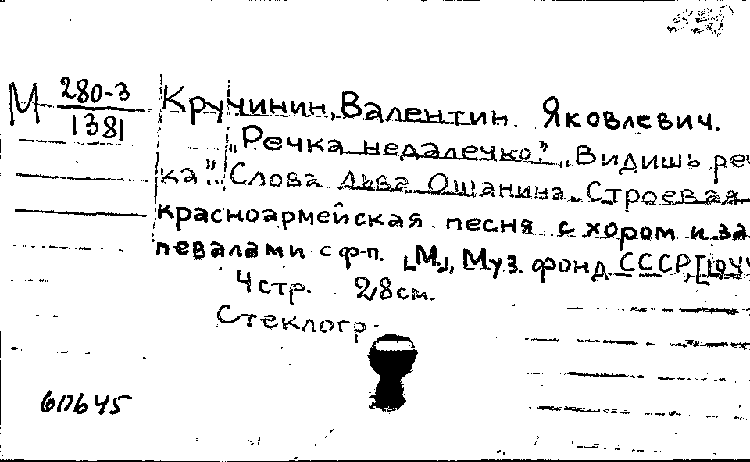 М 280-3 Кручинин, Валентин Яковлевич.
1381 „Речка недалечко". „Видишь реч
ка". Слова Льва Ошанина. Строевая
красноармейская песня с хором и за
певалами с ф-п. [М.], Муз. фонд СССР, [1944
4 стр. 28 см.
Стеклогр.
6П645